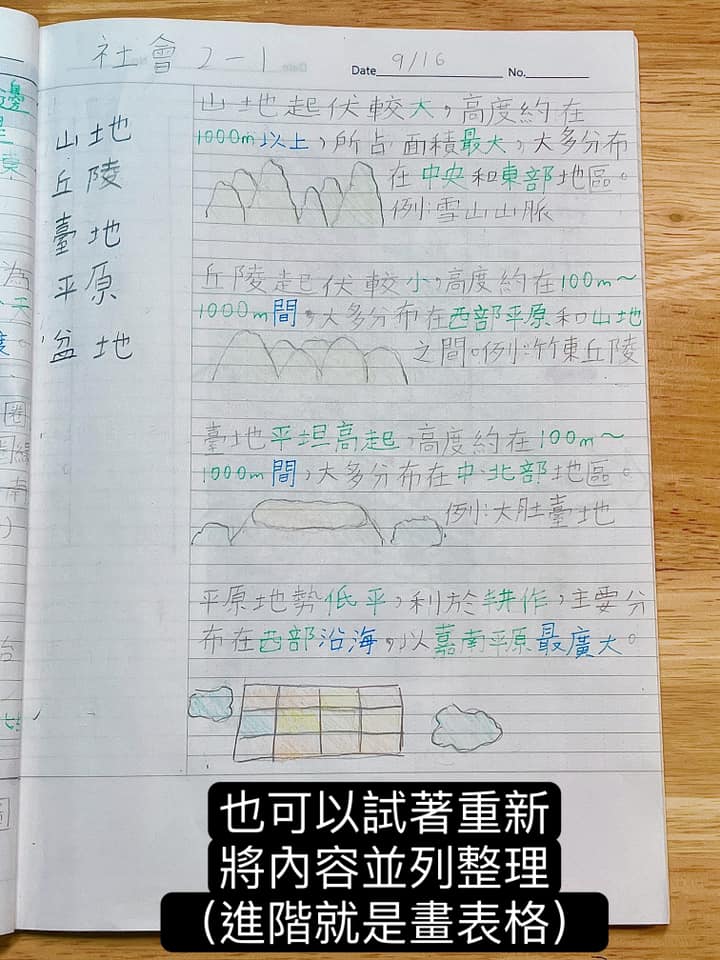 社會 2-1
Date 9/16 No.
山地
丘陵
臺地
平原
盆地
山地起伏較大,高度約在
1000m以上,所占面積最大,大多分布
在中央和東部地區。
例:雪山山脈
丘陵起伏較小,高度約在100m~
1000m間,大多分布在西部平原和山地
之間。例:竹東丘陵
臺地平坦高起,高度約在100m~
1000m間,大多分布在中、北部地區。
例:大肚臺地
平原地勢低平,利於耕作,主要分
布在西部沿海,以嘉南平原最廣大。
也可以試著重新
將內容並列整理
(進階就是畫表格)